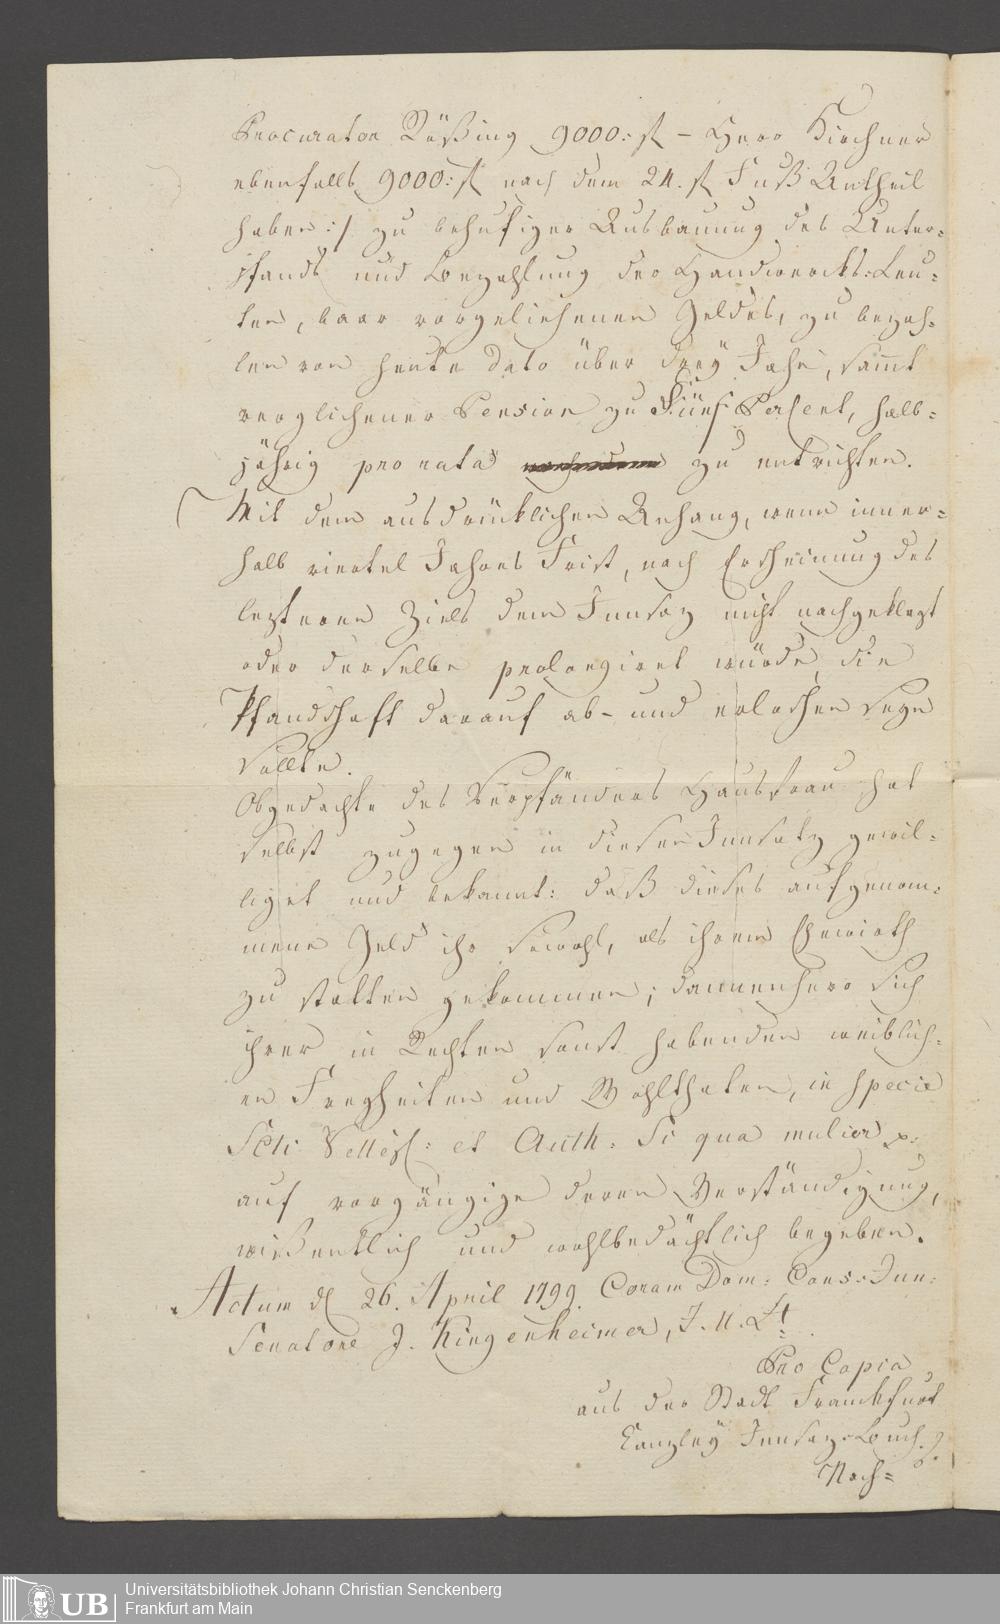 Procurator Rößing 9000: fl – Herr Kirchner
ebenfalls 9000: fl nach dem 24. fl Fuß Antheil
haben :/ zu behufiger Ausbauung des Unter-
pfands und Bezahlung der Handwercks-Leu-
ten, baar vorgeliehenen Geldes, zu bezah-
len von heute dato über drey Jahr, samt
verglichener Pension zu Fünf PerCent, halb-
jährig pro rata zu entrichten.
Mit dem ausdrücklichen Anhang, wenn inner-
halb viertel Jahres Frist, nach Erscheinung des
lezteren Ziels dem Innsaz nicht nachgeklagt
oder derselbe prolongiret würde, die
Pfandschaft darauf ab- und erloschen seyn
sollte.
Obgedachte des Verpfänders Hausfrau hat
selbst zugegen in diesen Innsatz gewil-
liget und bekannt: daß dieses aufgenom-
mene Geld ihr sowohl, als ihrem Ehewirth
zu statten gekommen; dannenhero sich
ihrer in Rechten sonst habenden weiblich-
en Freyheiten und Wohlthaten, in specie
Scti Vellej: et Auth: Si qua mulier p.
auf vorgängige deren Verständigung,
wißentlich und wohlbedächtlich begeben.
Actum d 26. April 1799. Coram Dom: Cons: Jun:
Senatore J. Kingenheimer, J. U. Lt
Pro Copia
aus der Stadt Franckfurt
Canzley Innsaz-Buch.
Nach-
Universitätsbibliothek Johann Christian Senckenberg
Frankfurt am Main
UB